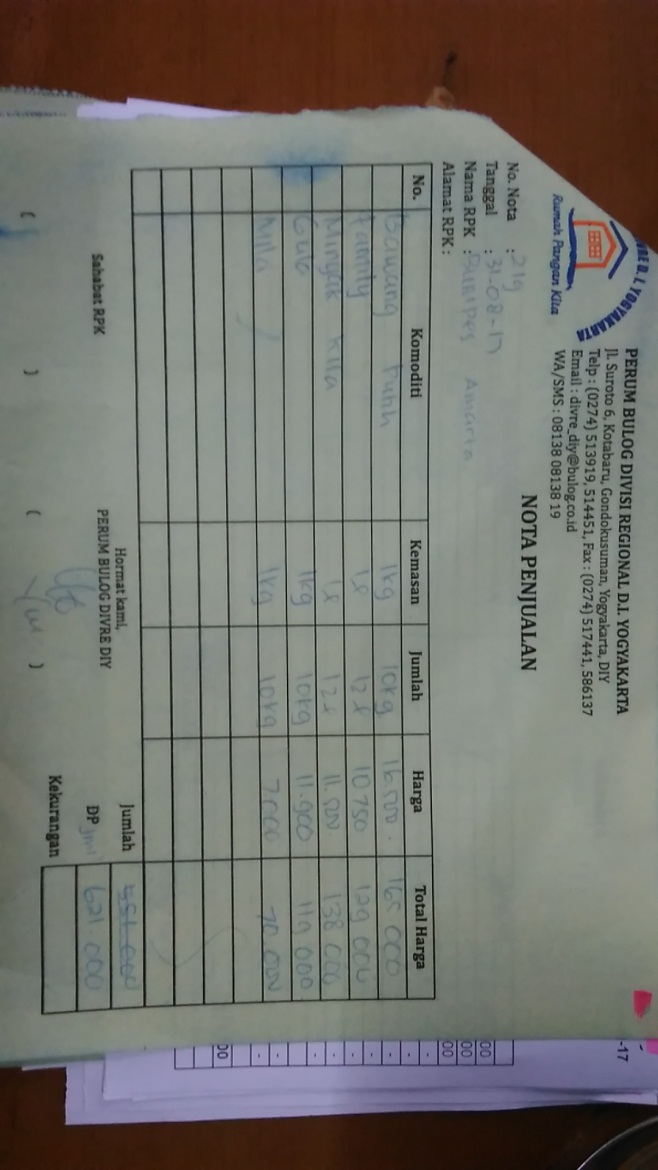 PERUM BULOG DIVISI REGIONAL D.I. YOGYAKARTA
Jl. Suroto 6, Kotabaru, Gondokusuman, Yogyakarta, DIY
Telp : (0274) 513919, 514451, Fax : (0274) 517441, 586137
Email : divre_diy@bulog.co.id
WA/SMS : 08138 08138 19
Rumah Pangan Kita
NOTA PENJUALAN
No. Nota : 219
Tanggal : 31-08-17
Nama RPK : Amarta
Alamat RPK :
No. Komoditi Kemasan Jumlah Harga Total Harga
Bawang Putih 1kg 10kg 16.500 165.000
Family 1l 12l 10.750 129.000
Minyak Kita 1l 12l 11.500 138.000
Gula 1kg 10kg 11.900 119.000
10kg 7.000 70.000
1kg
Jumlah
DP 621.000
Kekurangan
Sahabat RPK
Hormat kami,
PERUM BULOG DIVRE DIY
( ) ( )
-17
00
00
00
00